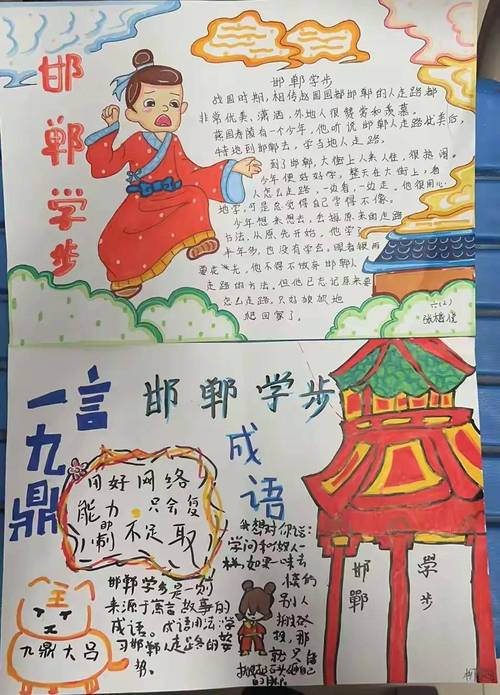 邯郸学步
邯郸学步
战国时期,相传赵国国都邯郸的人走路都
非常优美、潇洒,外地人很赞赏和羡慕。
燕国寿陵有一个少年,他听说邯郸人走路优美后,
特地到邯郸去,学当地人走路。
到了邯郸,大街上人来人往,很热闹。
少年便好好学,整天在大街上,看
人怎么走路,一边看,一边走,他很用心
地学,可是总觉得自己学得不像。
少年想来想去,去掉原来的走路
方法,从原先开始,他学了
半年多,也没有学会,眼看钱两
要花光,他不得不放弃邯郸人
走路的方法。但他已忘记原来
怎么走路,只好
爬回家了。
六(2)
一言九鼎
邯郸学步
成语
用好网络
能力 只会复
制 即 不足取
我想对你说:
学问和做人一
样,如果一味去
模仿
别人
那
就只能
邯郸学步是一则
来源于寓言故事的
成语。成语用法:学
习邯郸人走路的姿
势。
王
九鼎大吕
邯郸
学步